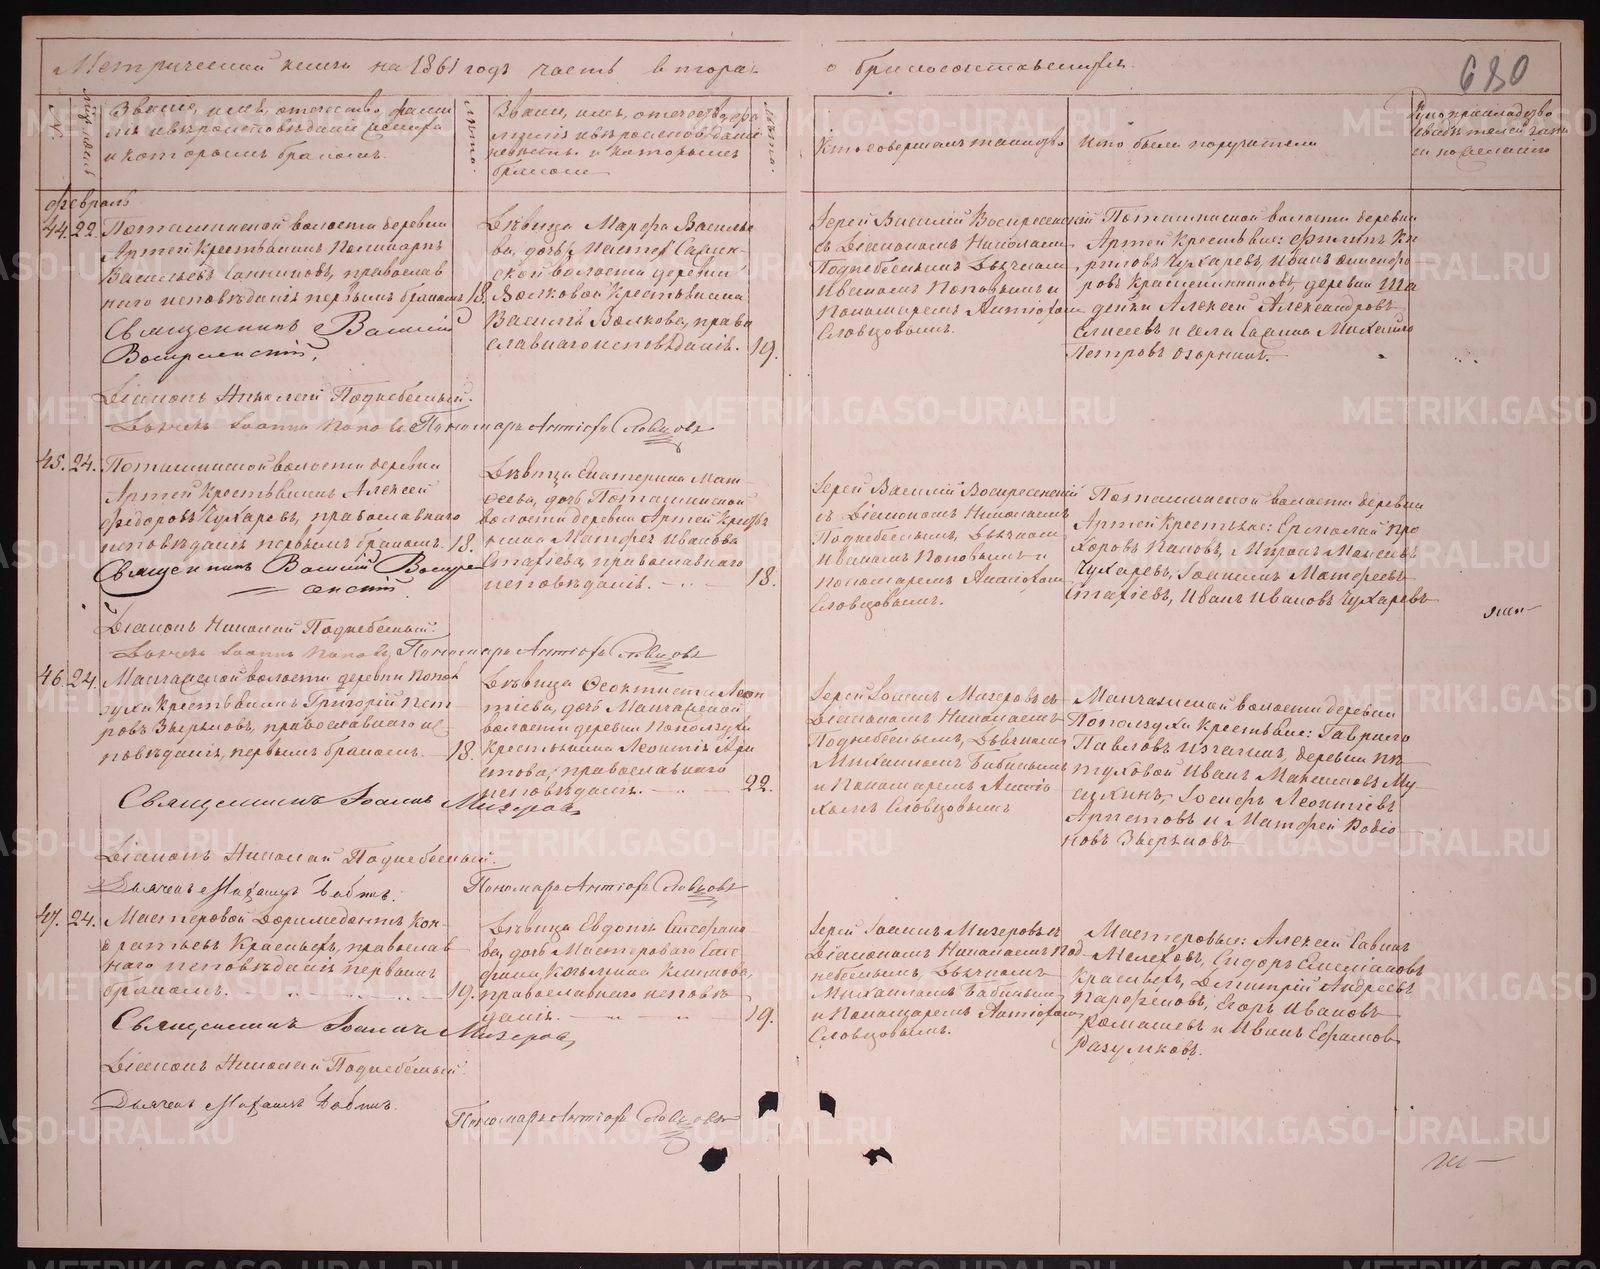 Метрической книги на 1861 годъ часть вторая о бракосочетавшихся.
680
Званіе, имя, отечество, фами
лія и вѣроисповѣданіе жениха
и которымъ бракомъ.
Лѣта.
Званіе, имя, отечество, фа
милія и вѣроисповѣданіе
невѣсты и которымъ
бракомъ
Лѣта.
Кто совершалъ таинство
Кто были поручители
Февраль
44. 22.
Поташинской волости деревни
Артей Крестьянинъ Поликарпъ
Васильевъ Санниковъ, православ
наго исповѣданія первымъ бракомъ
18.
Священникъ Василій
Воскресенскій.
Діаконъ Николай Поднебесный.
Дьячекъ Іоаннъ Поповъ Пономарь Антіохъ Словцовъ
Дѣвица Марфа Василье
ва, дочь
волости деревни
Волковой Крестьянина
Василія Волкова, право
славнаго исповѣданія.
19.
Іерей Василій Воскресенскій
съ Діакономъ Николаемъ
Поднебеснымъ, Дьячкомъ
Иваномъ Поповымъ и
Пономаремъ Антіохомъ
Словцовымъ.
Поташинской волости деревни
Артей Крестьяне: Филипъ Ки
риловъ Чухаревъ, Иванъ Никифо
ровъ Крашенинниковъ, деревни
Алексей Александровъ
Елисеевъ и села Сажина Михайло
Петровъ Озорнинъ.
45. 24.
Поташинской волости деревни
Артей Крестьянинъ Алексей
Федоровъ Чухаревъ, православнаго
исповѣданія первымъ бракомъ.
18.
Священникъ Василій Воскре
сенскій.
Діаконъ Николай Поднебесный.
Дьячекъ Іоаннъ Поповъ Пономарь Антіохъ Словцовъ
Дѣвица Екатерина Мат
феева, дочь Поташинской
волости деревни Артей Кресть
янина Матфея Иванова
Стахіева, православнаго
исповѣданія.
18.
Іерей Василій Воскресенскій
съ Діакономъ Николаемъ
Поднебеснымъ, Дьячкомъ
Иваномъ Поповымъ и
Пономаремъ Антіохомъ
Словцовымъ.
Поташинской волости деревни
Артей Крестьяне: Ермолай Про
хоровъ Поповъ, Миронъ Моисеевъ
Чухаревъ, Іоакимъ Матфеевъ
Стахіевъ, Иванъ Ивановъ Чухаревъ
46. 24.
Манчажской волости деревни Попол
зухи Крестьянинъ Григорій Пет
ровъ Зверьковъ, православнаго ис
повѣданія, первымъ бракомъ.
18.
Священникъ Іоаннъ Мизеровъ
Діаконъ Николай Поднебесный.
Дьячекъ Михаилъ Бабинъ.
Пономарь Антіохъ Словцовъ
Дѣвица Феоктиста Леон
тіева, дочь Манчажской
волости деревни Поползухи
Крестьянина Леонтія Ари
стова, православнаго
исповѣданія.
22.
Іерей Іоаннъ Мизеровъ съ
Діакономъ Николаемъ
Поднебеснымъ, Дьячкомъ
Михаиломъ Бабинымъ
и Пономаремъ Антіо
хомъ Словцовымъ
Манчажской волости деревни
Поползухи Крестьяне: Гаврило
Павловъ Изгагинъ, деревни Пѣ
туховой Иванъ Максимовъ Му
Іосифъ Леонтіевъ
Аристовъ и Матфей Родіо
новъ Зверьковъ
47. 24.
Мастеровой Доримедонтъ Кон
дратьевъ Красныхъ, православ
наго исповѣданія первымъ
бракомъ.
19.
Священникъ Іоаннъ Мизеровъ
Діаконъ Николай Поднебесный.
Дьячекъ Михаилъ Бабинъ.
Пономарь Антіохъ Словцовъ
Дѣвица Евдокія Стефано
ва, дочь Мастероваго Сте
фана Козьмина Климова,
православнаго исповѣ
данія.
19.
Іерей Іоаннъ Мизеровъ съ
Діакономъ Николаемъ Под
небеснымъ, Дьячкомъ
Михаиломъ Бабинымъ
и Пономаремъ Антіохомъ
Словцовымъ.
Мастеровые: Алексей Савинъ
Мелеховъ, Сидоръ Емеліановъ
Красныхъ, Димитрій Андреевъ
Парфеновъ, Егоръ Ивановъ
Ромашевъ и Иванъ Ефимовъ
Разумковъ.
METRIKI.GASO-URAL.RU